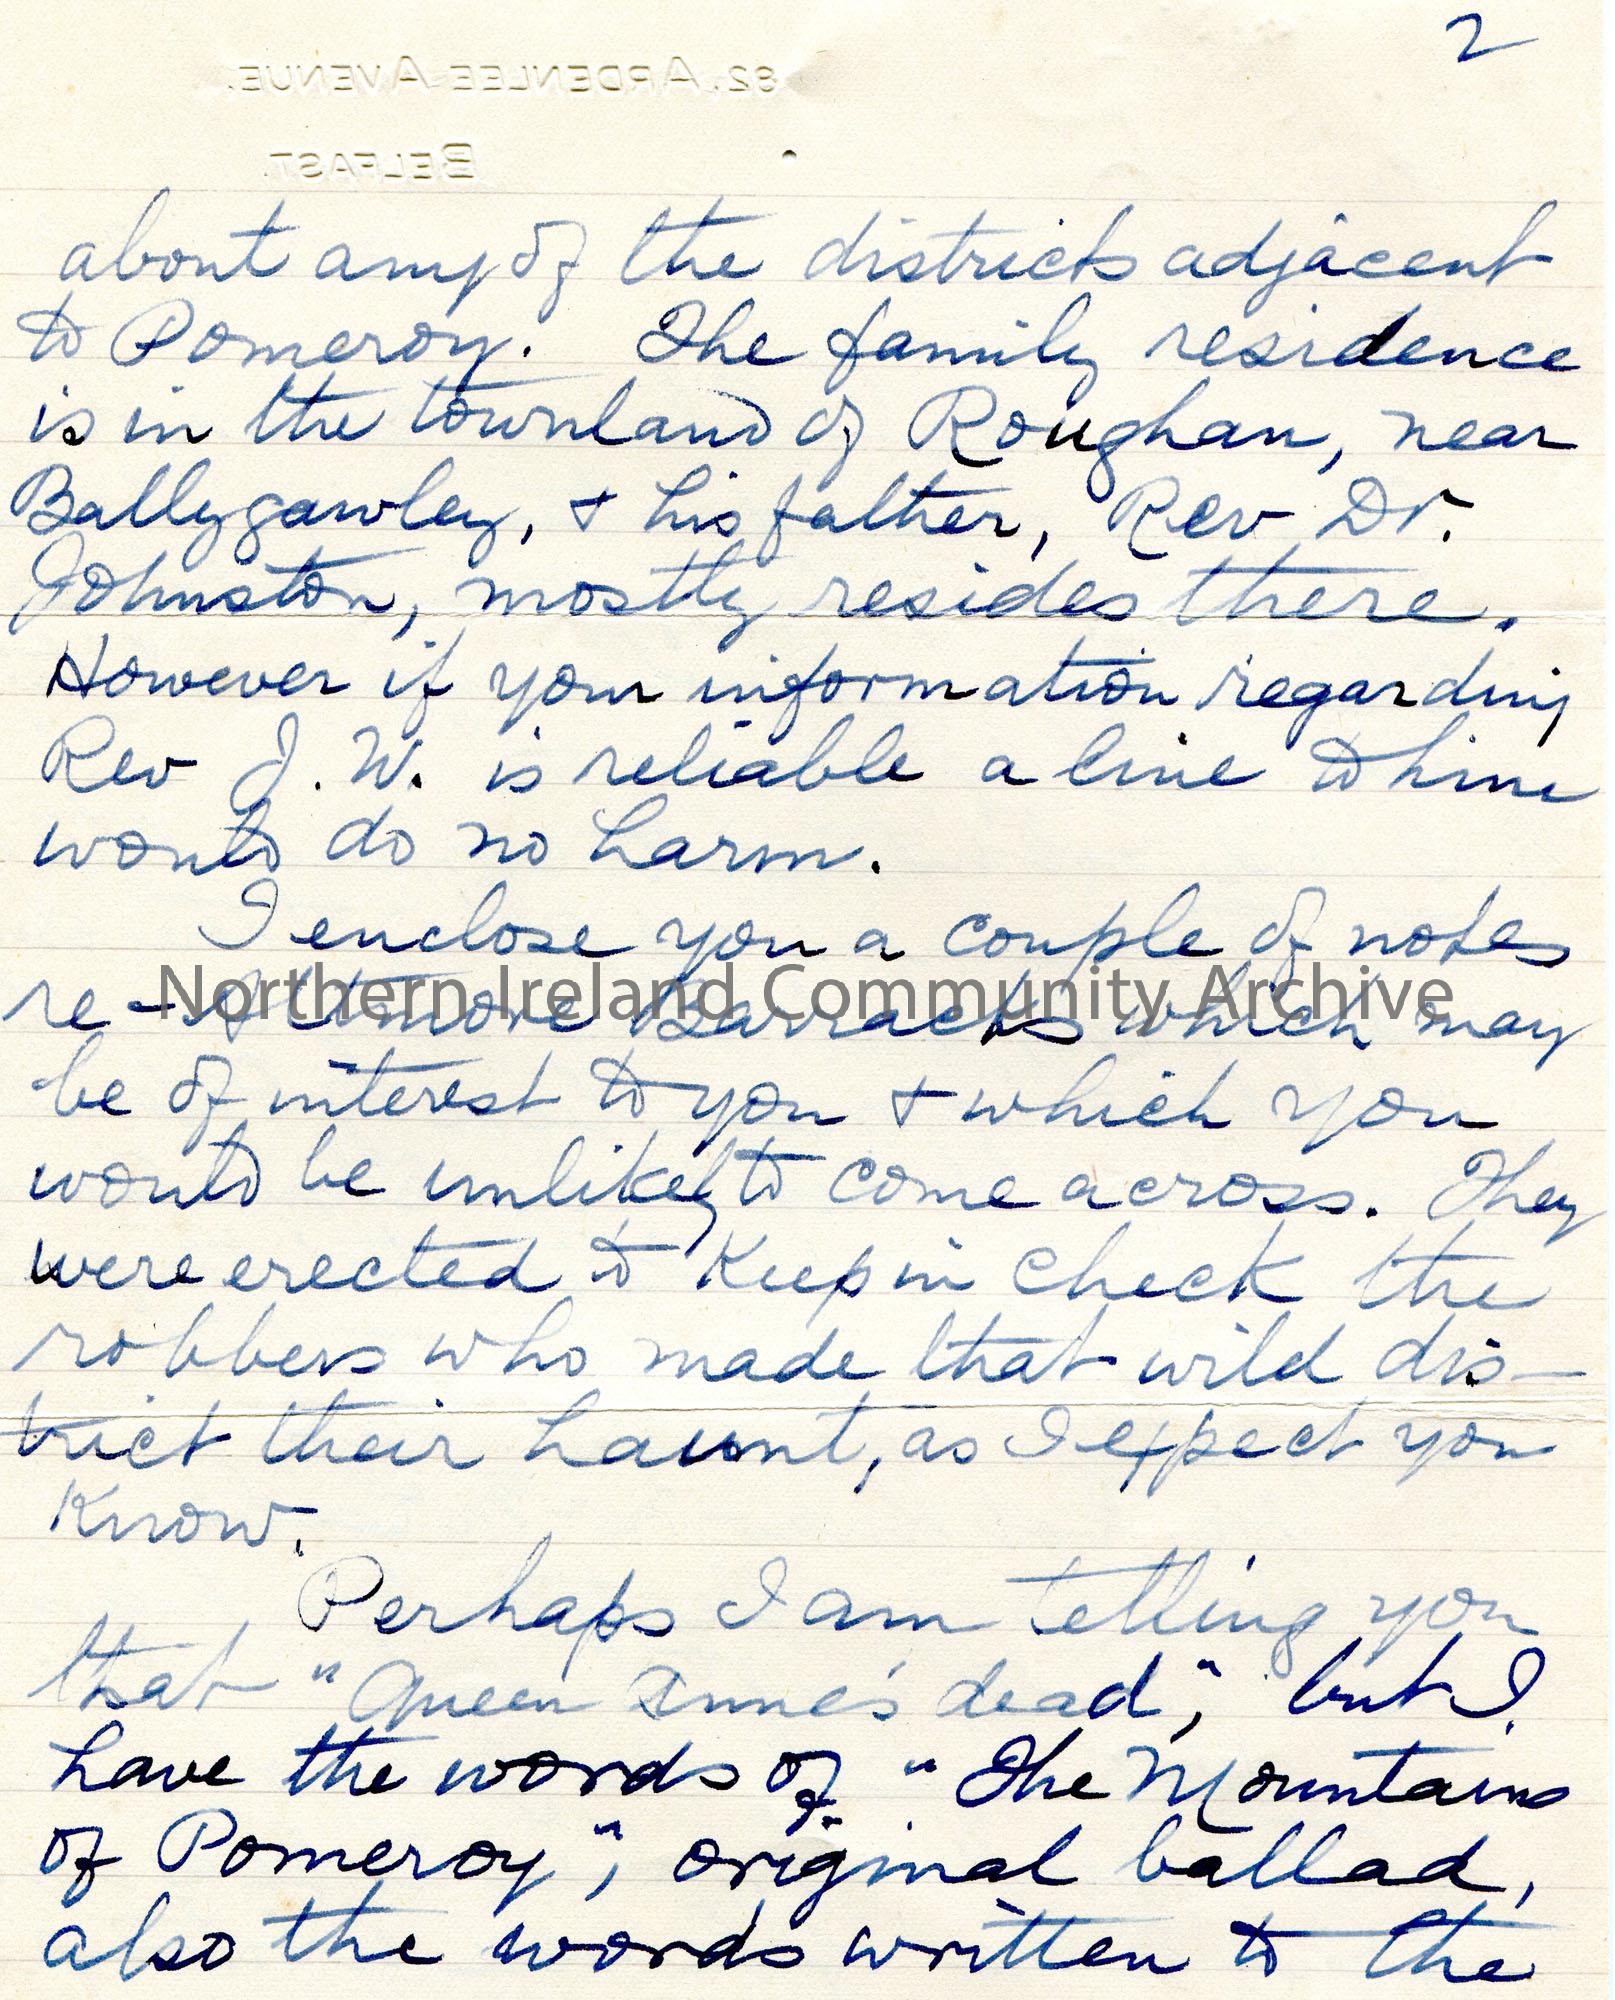 2
82, ARDENLEE AVENUE.
BELFAST.
about any of the districts adjacent
to Pomeroy. The family residence
is in the townland of Roughan, near
Ballygawley, & his father, Rev Dr.
Johnston, mostly resides there.
However if your information regarding
Rev J. W. is reliable a line to him
would do no harm.
I enclose you a couple of notes
re - Altmore Barracks which may
Northern Ireland Community Archive
be of interest to you & which you
would be unlikely to come across. They
were erected to keep in check the
robbers who made that wild dis-
trict their haunt, as I expect you
know.
Perhaps I am telling you
that "Queen Anne's dead", but I
have the words of "The Mountains
of Pomeroy", original ballad,
also the words written to the